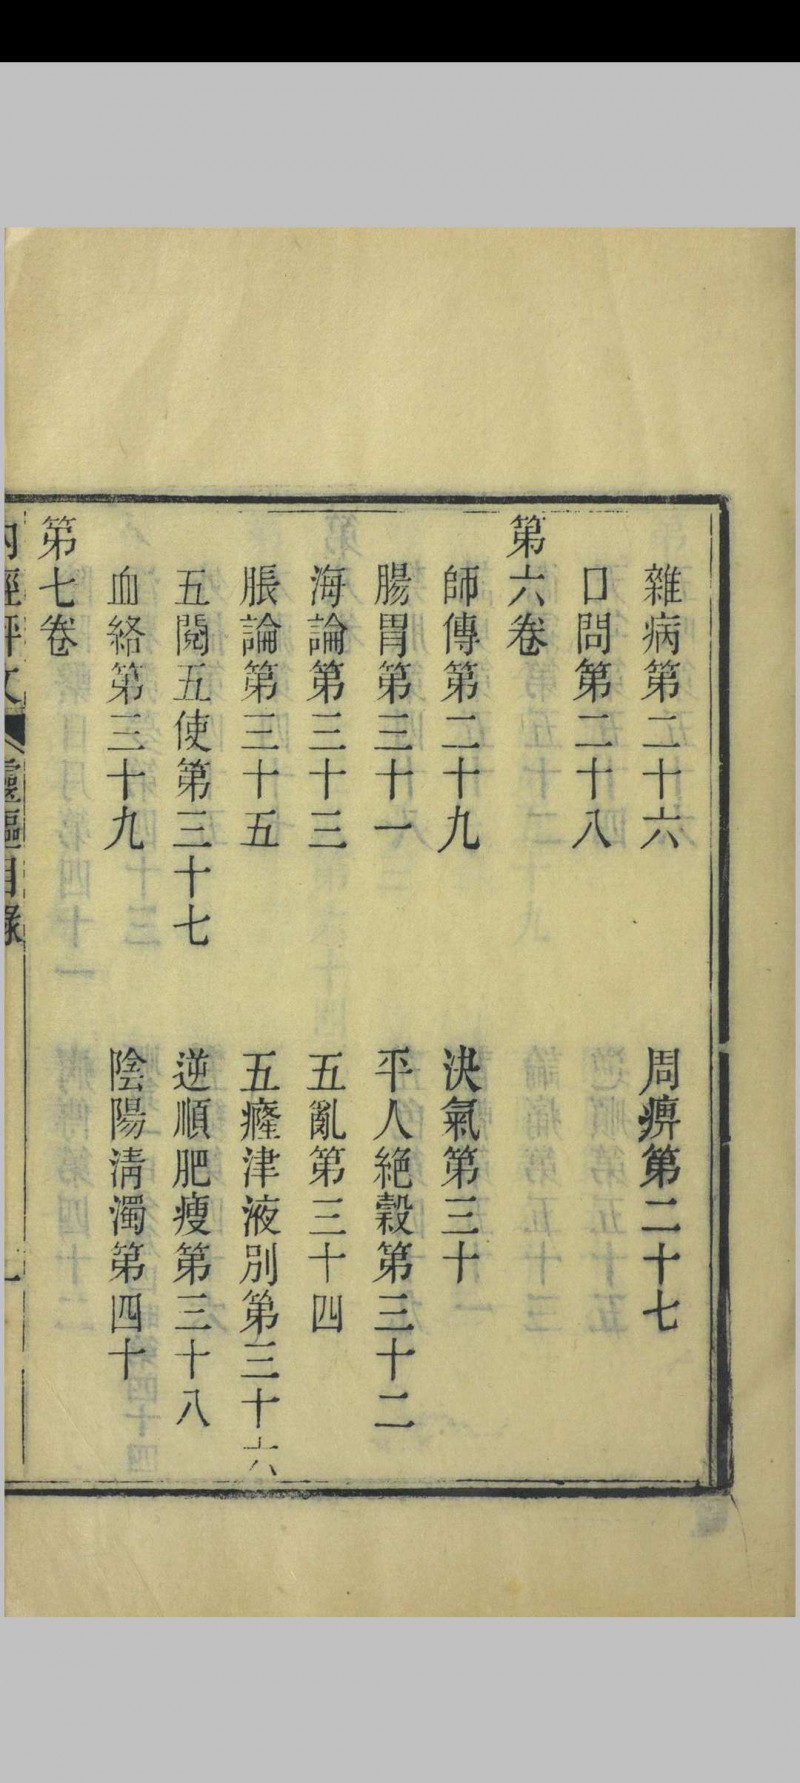 雜病第二十六　周痹第二十七
口問第二十八
第六卷
師傳第二十九　決氣第三十
腸胃第三十一　平人絕穀第三十二
海論第三十三　五亂第三十四
脹論第三十五　五癃津液別第三十六
五閱五使第三十七　逆順肥瘦第三十八
血絡第三十九　陰陽清濁第四十
第七卷
內經評文　靈樞目錄